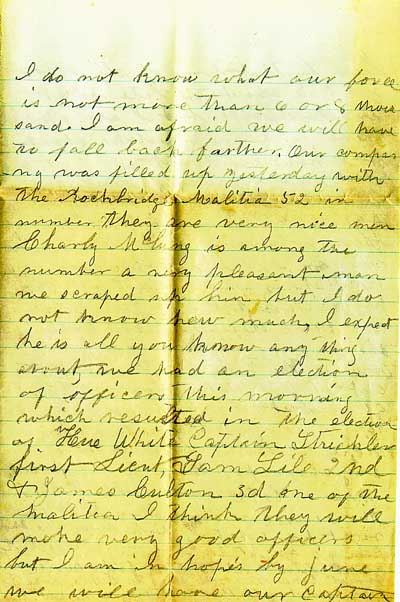 I do not know what our force
is not more than 6 or 8 thou
sand. I am afraid we will have
to fall back farther. Our compa
ny was filled up yesterday with
the Rockbridge Malitia 52 in
number they are very nice men
Charly McClung is among the
number a very pleasant man
we scraped up kin but I do
not know how much, I expect
he is all you know any thing
about, we had an election
of officers this morning
which resulted in the election
of Hue White Captain Strickler
first Lieut, Sam Lile 2nd
& James Culton 3d one of the
malitia I think they will
make very good officers
but I am in hopes by june
we will have our Captain